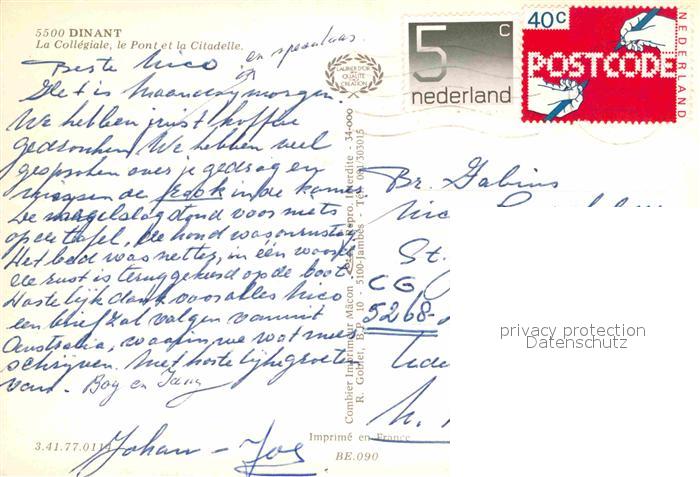 5500 DINANT
La Collégiale, le Pont et la Citadelle.
LAURIER D'OR
DE LA
QUALITÉ
CREATION
5 c
nederland
40c
POSTCODE
NEDERLAND
Beste Nico en
Het is maandagmorgen.
We hebben juist koffie
gedronken. We hebben veel
gesproken over je gedrag en
in de kamer
De stond voor niets
op de tafel, de hond was onrustig
Het bed was netter, in één woord
de rust is teruggekeerd op de boot
Hartelijk dank voor alles Nico
een brief zal volgen vanuit
Australia, waarin we wat meer
schrijven. Met hartelijke groeten
van. Boy en
Johan - Jos
Combier Imprimeur Mâcon Repro. Interdite - 34-000
R. Goblet, B.P. 10 5100-Jambes - Tél. 081/303015
Br.
Nico
St.
CG,
5268-
3.41.77.0114
Imprimé en France
BE.090
privacy protection
Datenschutz